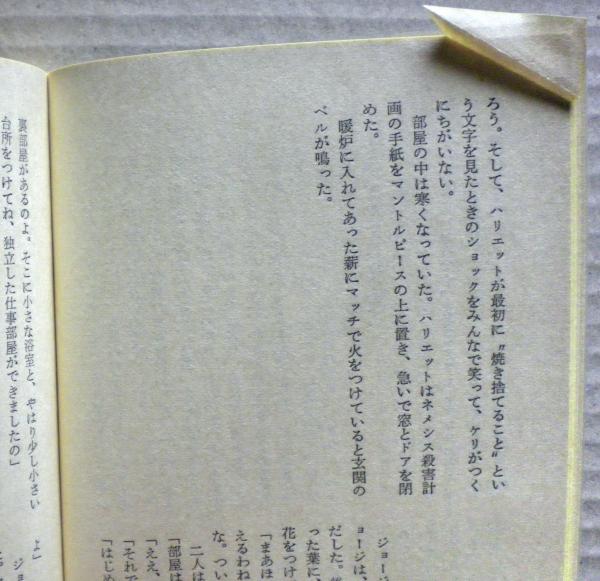 ろう。そして、ハリエットが最初に〝焼き捨てること〟とい
う文字を見たときのショックをみんなで笑って、ケリがつく
にちがいない。
部屋の中は寒くなっていた。ハリエットはネメシス殺害計
画の手紙をマントルピースの上に置き、急いで窓とドアを閉
めた。
暖炉に入れてあった薪にマッチで火をつけていると玄関の
ベルが鳴った。
ジョージ
ョージは、
だした。
った葉に、
花をつけ
「まあほ
えるわね
な。つい
二人は
「部屋は
「ええ、
「それで
「はじめ
裏部屋があるのよ。そこに小さな浴室と、やはり少し小さい
台所をつけてね、独立した仕事部屋ができましたの」
よ」